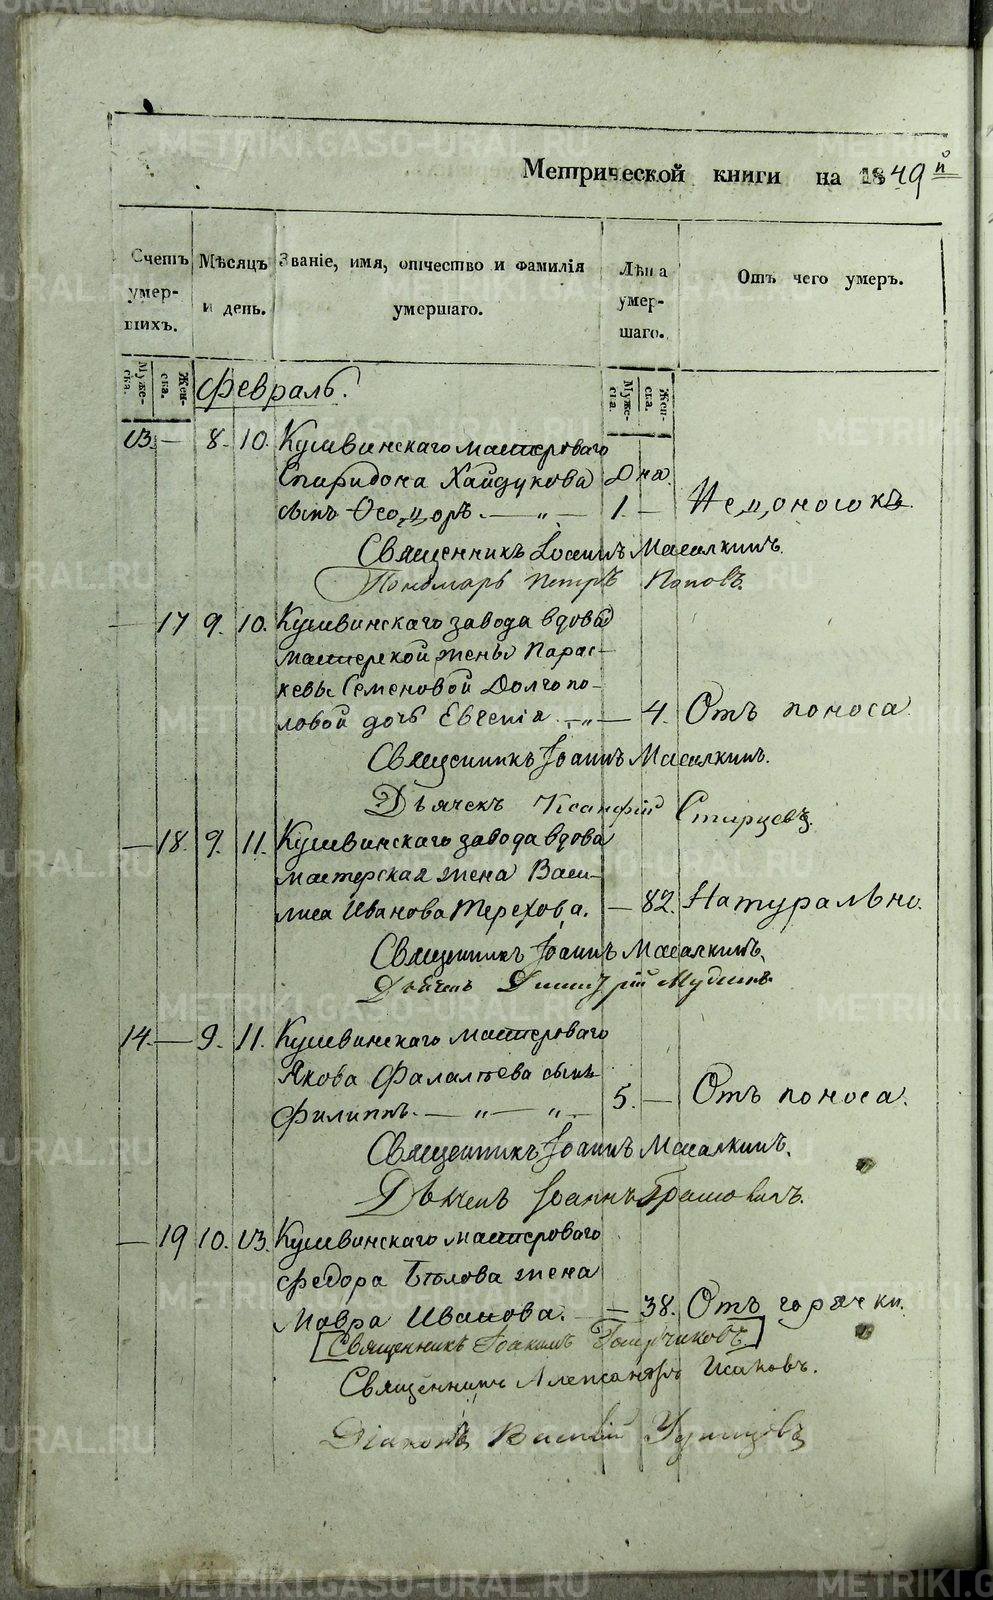 METRIKI.GASO-URAL.RU
Метрической книги на 1849й
Счетъ умерших. Мѣсяцъ и день. Званіе, имя, отчество и фамилія умершаго. Лѣта умершаго. Отъ чего умеръ.
Мужеска. Женска. Мужеска. Женска.
Февраль.
13. — 8. 10. Кушвинскаго мастероваго
Спиридона Хайдукова Дня.
сынъ Ѳеодоръ. — „ — 1. — Недоносокъ.
Священникъ Іоаннъ Масалкинъ.
Пономарь Петръ Поповъ.
— 17 9. 10. Кушвинскаго завода вдовы
мастерской жены Парас-
кевы Семеновой Долгопо-
ловой дочь Евгенія — „ — 4. Отъ поноса.
Священникъ Іоаннъ Масалкинъ.
Дьячекъ Ксанфій Старцевъ.
— 18. 9. 11. Кушвинскаго завода вдова
мастерская жена Васи-
лиса Иванова Терехова. — 82. Натурально.
Священникъ Іоаннъ Масалкинъ.
Дьячекъ Димитрій Мудинъ
14. — 9. 11. Кушвинскаго мастероваго
Якова Фалалѣева сынъ
Филиппъ. — „ — „ — 5. — Отъ поноса.
Священникъ Іоаннъ Масалкинъ.
Дьячекъ Іоаннъ
— 19 10. 13. Кушвинскаго мастероваго
Федора Бѣлова жена
Мавра Иванова. — 38. Отъ горячки.
Священникъ Іоакимъ
Священникъ Александръ Исаковъ.
Діаконъ Василій
METRIKI.GASO-URAL.RU